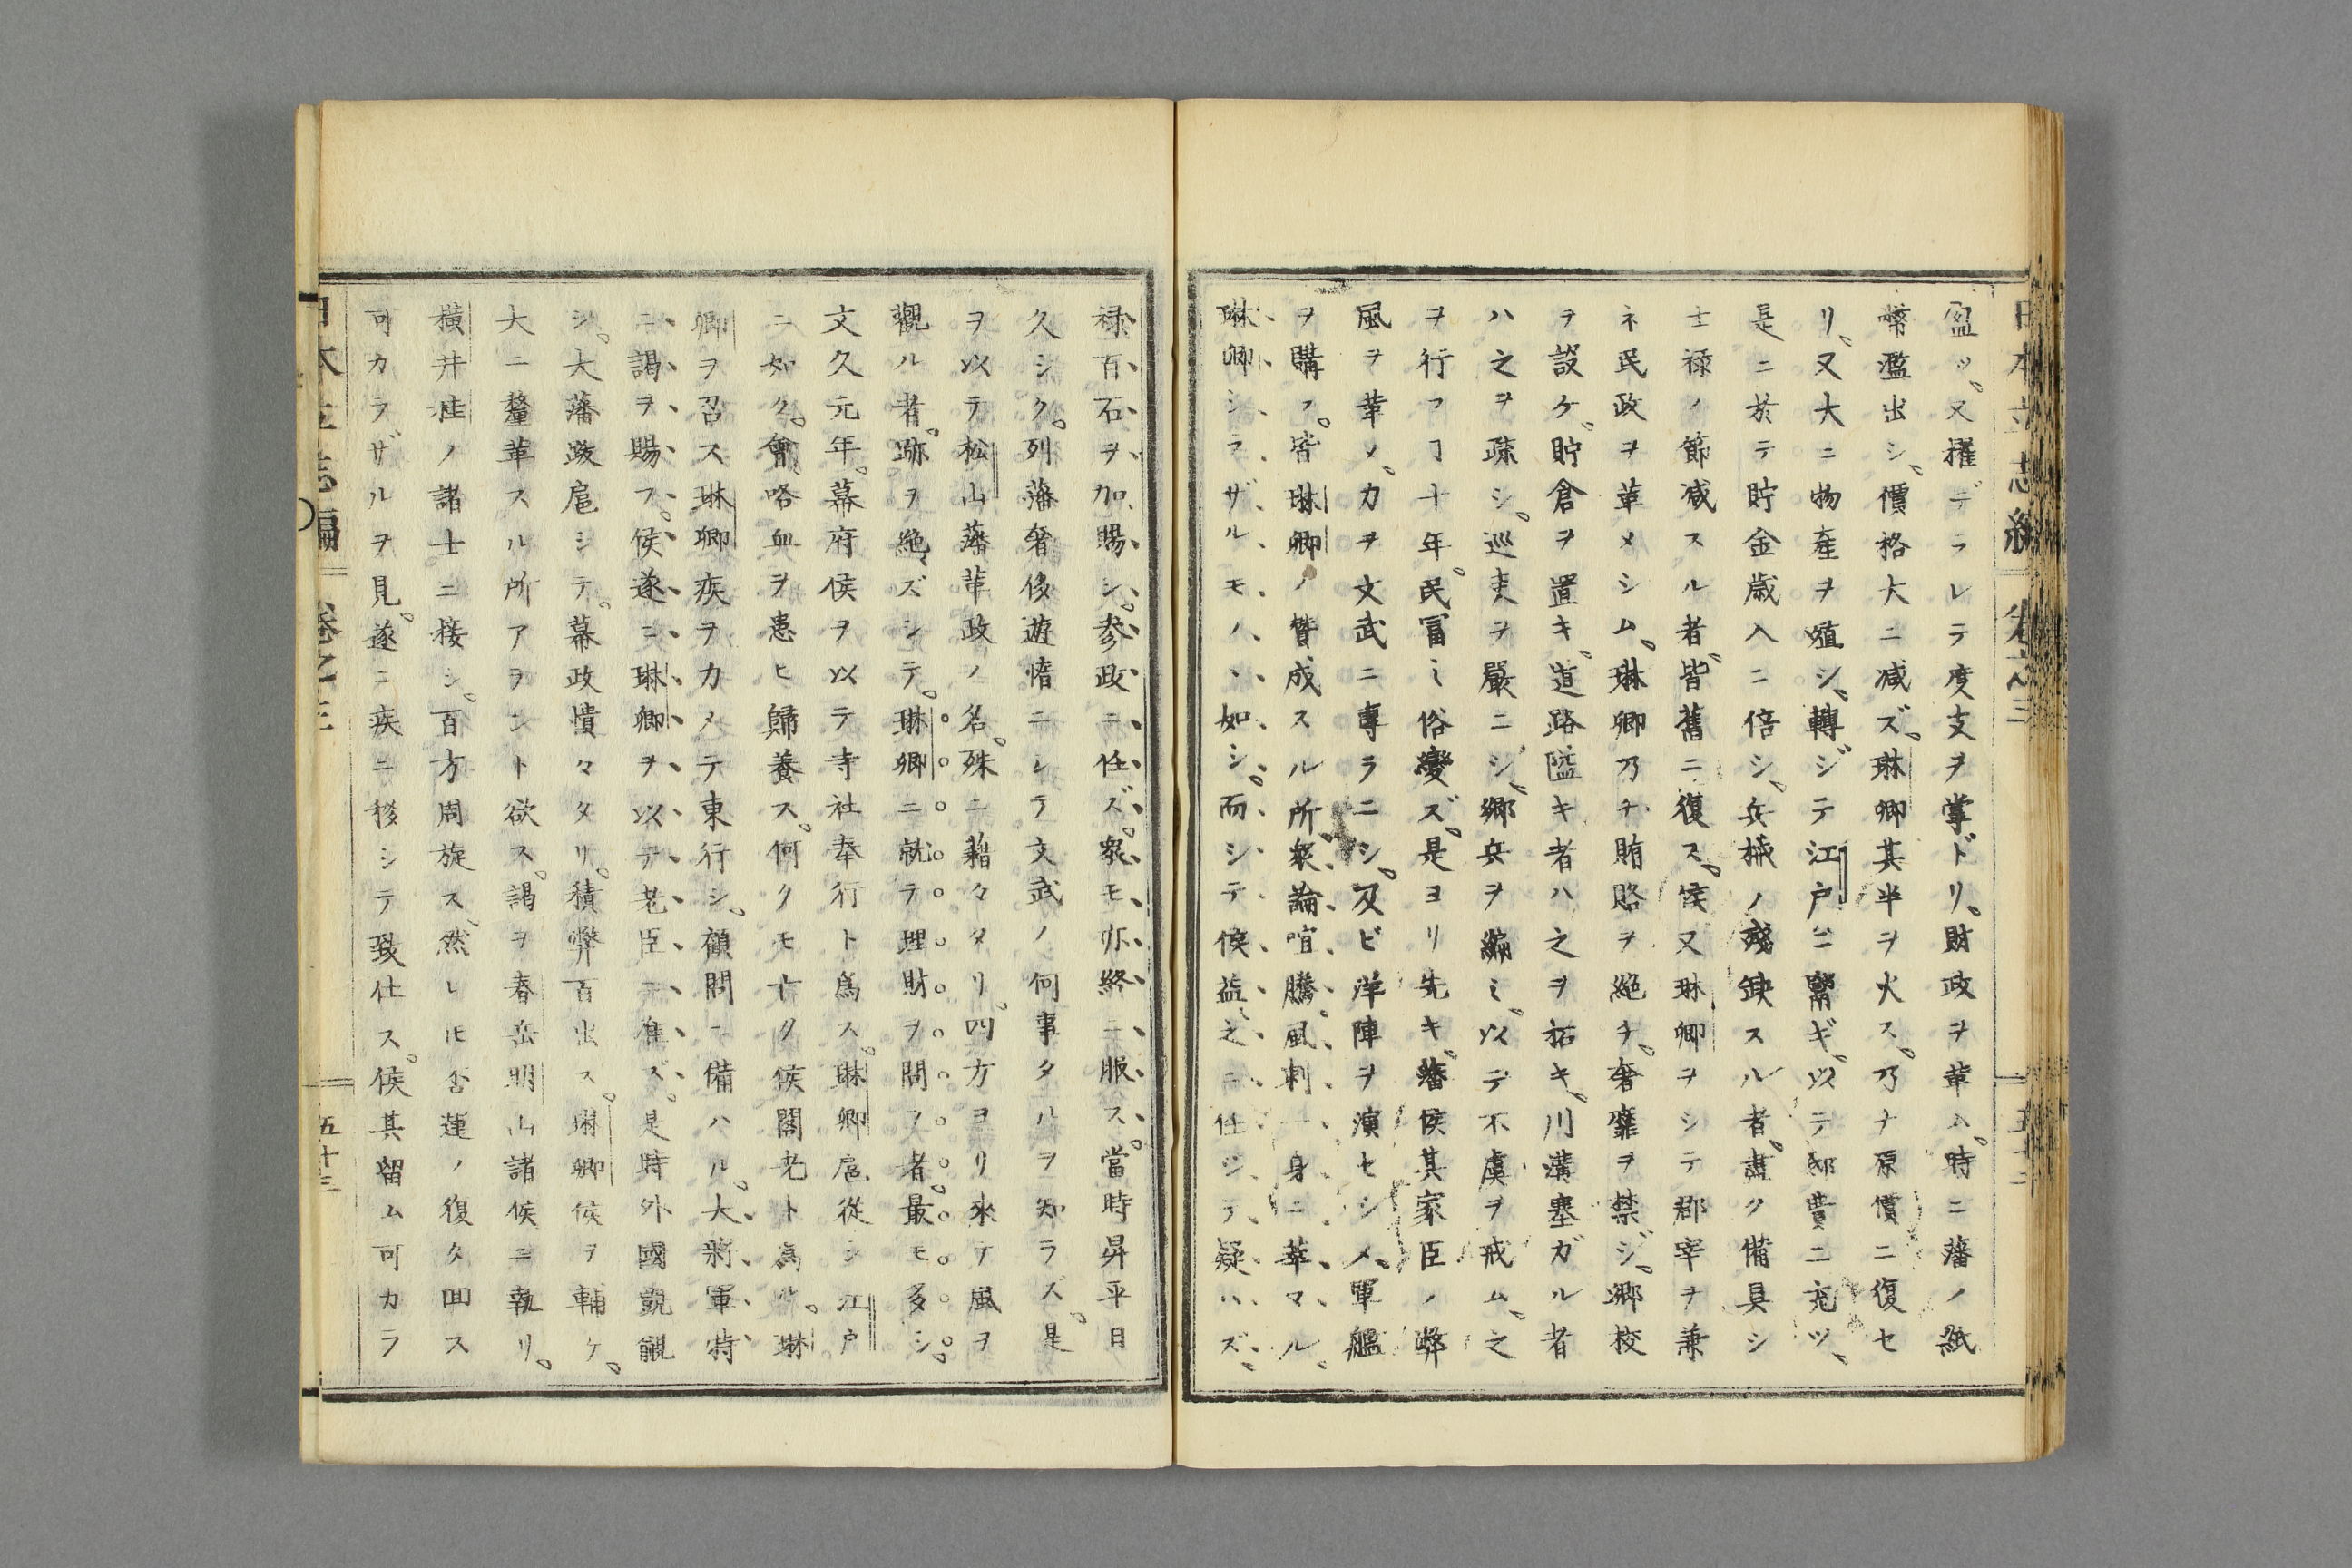 盈ッ、又擢デラレテ度支ヲ掌ドリ、財政ヲ革ム。時ニ藩ノ紙
幣濫出シ、價格大ニ减ズ。琳卿其半ヲ火ス。乃ナ原價ニ復セ
リ、又大ニ物産ヲ殖シ、轉ジテ江戸ニ鬻ギ、以テ邸費ニ充ツ、
是ニ於テ貯金歳入ニ倍シ、兵械ノ殘缺スル者、盡ク備具シ
士禄ノ節减スル者、皆舊ニ復ス。侯又琳卿ヲシテ郡宰ヲ兼
ネ民政ヲ革メシム、琳卿乃チ賄賂ヲ絕チ、奢靡ヲ禁ジ、郷校
ヲ設ケ、貯倉ヲ置キ、道路隘キ者ハ之ヲ拓キ、川溝塞ガル者
ハ之ヲ疏シ。巡吏ヲ嚴ニシ、郷兵ヲ編ミ、以テ不虞ヲ戒ム、之
ヲ行フヿ十年。民冨ミ俗變ズ。是ヨリ先キ、藩侯其家臣ノ弊
風ヲ革メ、力ヲ文武ニ專ラニシ、又ビ洋陣ヲ演セシメ、軍艦
ヲ購フ。皆琳卿ノ贊成スル所、衆論喧騰。風刺一身ニ萃マル、
琳卿シラザルモノヽ如シ。而シテ侯益之ニ任シテ疑ハズ、
禄百石ヲ加賜シ。参政ニ任ズ。衆モ亦終ニ服ス。當時昇平日
久シク。列藩奢侈遊惰ニシテ文武ノ何事タルヲ知ラズ。是
ヲ以テ松山藩革政ノ名。殊ニ藉々タリ。四方ヨリ來テ風ヲ
觀ル者。跡ヲ絕ズシテ。琳卿ニ就テ理財ヲ問フ者。最モ多シ。
文久元年。幕府侯ヲ以テ寺社奉行ト爲ス。琳卿扈從シ江戸
ニ如ク。會咯血ヲ患ヒ歸養ス。何クモ亡ク侯閣老ト爲ル。琳
卿ヲ召ス琳卿疾ヲカメテ東行シ。顧問ニ備ハル。大將軍特
ニ謁ヲ賜フ。侯遂ニ琳卿ヲ以テ老臣ニ准ズ。是時外國覬覦
シ。大藩跋扈シテ。幕政憒々タリ。積弊百出ス。琳卿侯ヲ輔ケ。
大ニ釐革スル所アヲント欲ス。謁ヲ春岳明山諸侯ニ執リ。
橫井桂ノ諸士ニ接シ。百方周旋ス、然レ𪜈否運ノ復タ回ス
可カラザルヲ見。遂ニ疾ニ移シテ致仕ス。侯其留ム可カラ
五十三